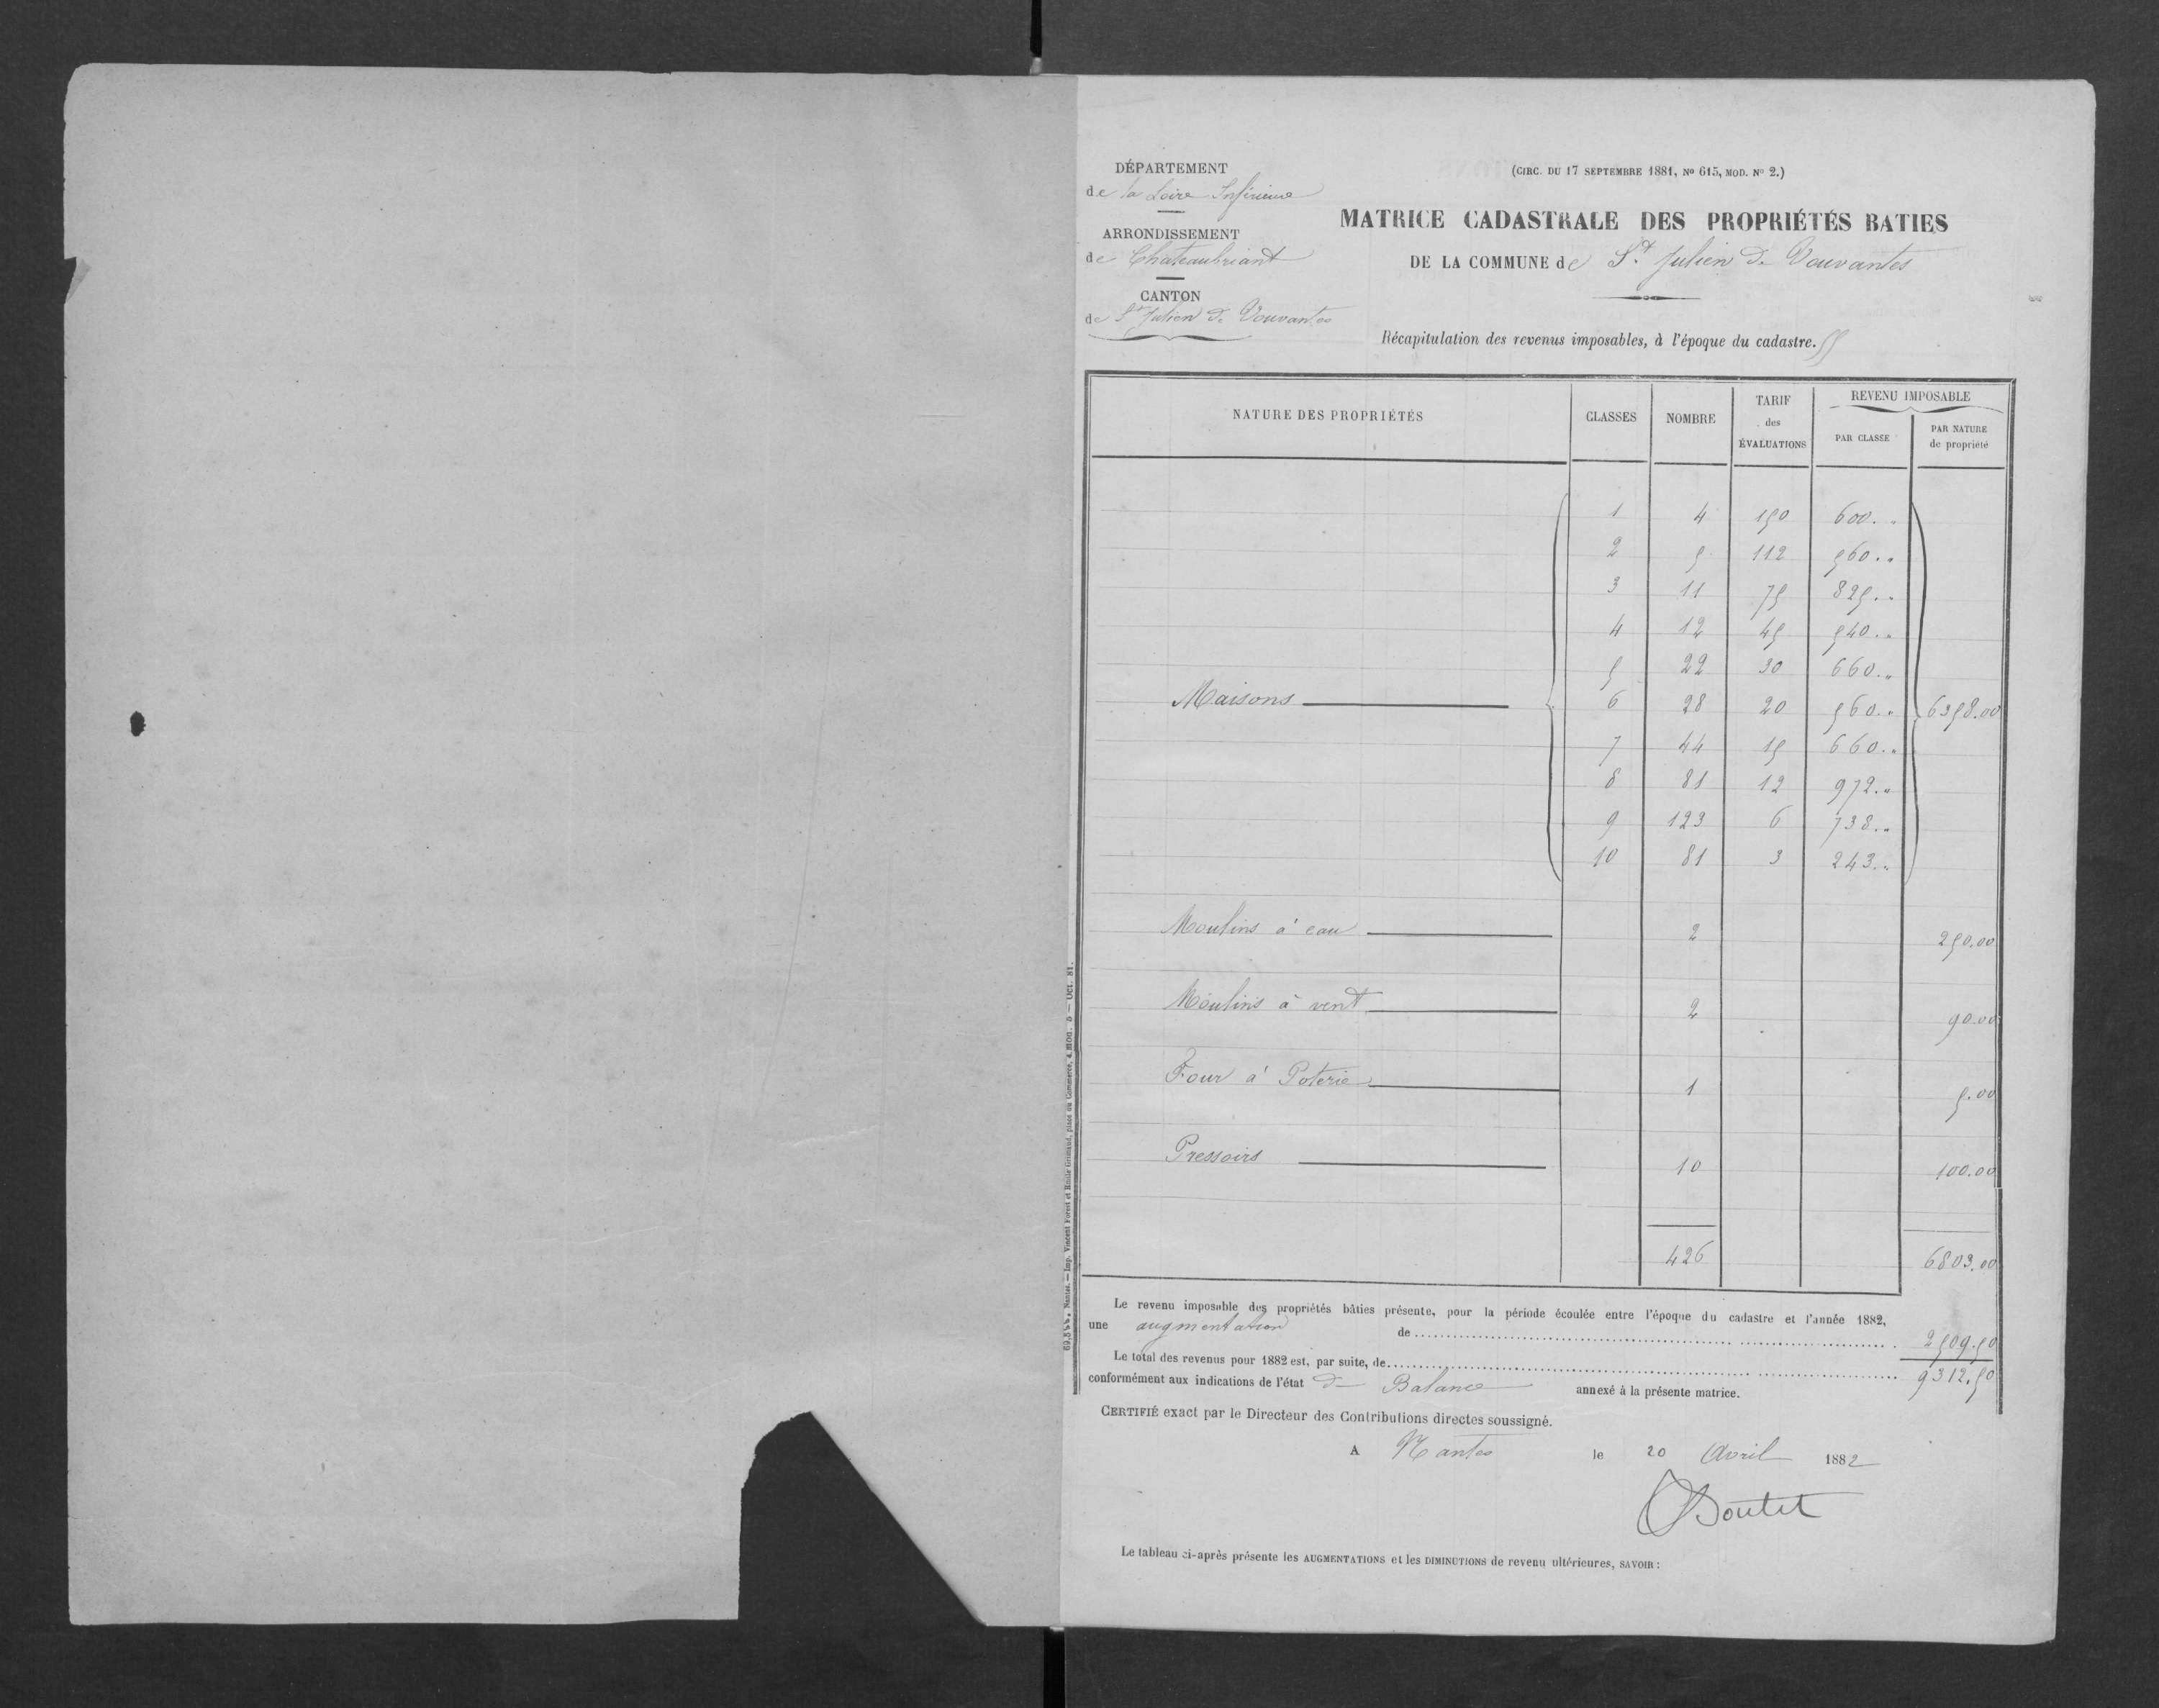 DÉPARTEMENT
de la Loire Inférieure
ARRONDISSEMENT
de Chateaubriant
CANTON
de St Julien de Vouvantes
(CIRC. DU 17 SEPTEMBRE 1881, No 615, MOD. No 2.)
MATRICE CADASTRALE DES PROPRIÉTÉS BATIES
DE LA COMMUNE de St Julien de Vouvantes
Récapitulation des revenus imposables, à l'époque du cadastre.
NATURE DES PROPRIÉTÉS CLASSES NOMBRE TARIF des ÉVALUATIONS REVENU IMPOSABLE PAR CLASSE PAR NATURE de propriété
1 4 150 600. "
2 5 112 560. "
3 11 75 825. "
4 12 45 540. "
5 22 30 660. "
Maisons 6 28 20 560. " 6358.00
7 44 15 660. "
8 81 12 972. "
9 123 6 738. "
10 81 3 243. "
Moulins à eau 2 250.00
Moulins à vent 2 90.00
Four à Poterie 1 5.00
Pressoirs 10 100.00
426 6803.00
Le revenu imposable des propriétés bâties présente, pour la période écoulée entre l'époque du cadastre et l'année 1882,
une augmentation de 2509.50
Le total des revenus pour 1882 est, par suite, de 9312.50
conformément aux indications de l'état de Balance annexé à la présente matrice.
CERTIFIÉ exact par le Directeur des Contributions directes soussigné.
A Nantes le 20 Avril 1882
Boutet
Le tableau ci-après présente les AUGMENTATIONS et les DIMINUTIONS de revenu ultérieures, SAVOIR :
Nantes. — Imp. Vincent Forest et Emile Grimaud, place du Commerce, 4. MOD. 5 — OCT. 81.